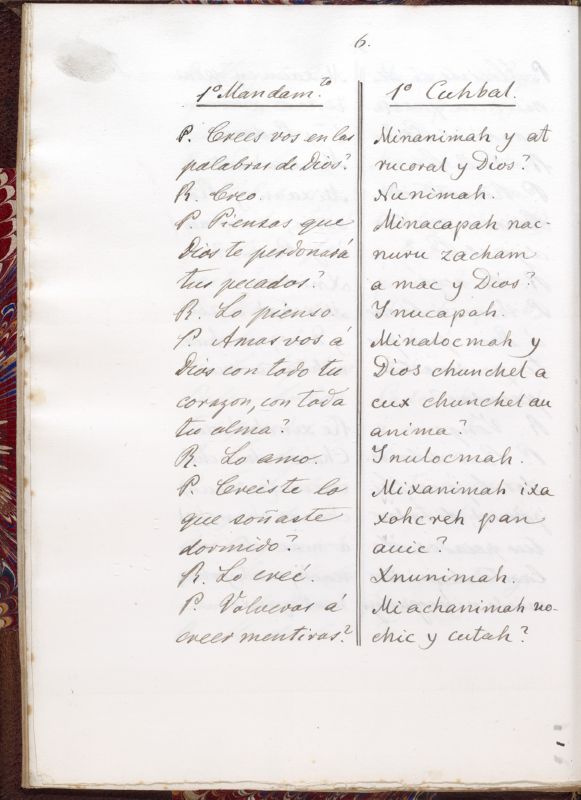 6.
1º Mandam.to
P. Crees vos en las
palabras de Dios?
R. Creo.
P. Piensas que
Dios te perdoñará
tus pecados?
R. Lo pienso.
P. Amas vos á
Dios con todo tu
corazon, con toda
tu alma?
R. Lo amo.
P. Creiste lo
que soñaste
dormido?
R. Lo creé.
P. Volveras á
creer mentiras?
1º Cuhbal.
Minanimah y at
rucoral y Dios?
Nunimah.
Minacapah nac-
nuru zacham
a mac y Dios?
Ynucapah.
Minalocmah y
Dios chunchel a
cux chunchel au
anima?
Ynulocmah.
Mixanimah ixa
xohcreh pan
auic?
Xnunimah.
Miachanimah vo-
chic y cutah?